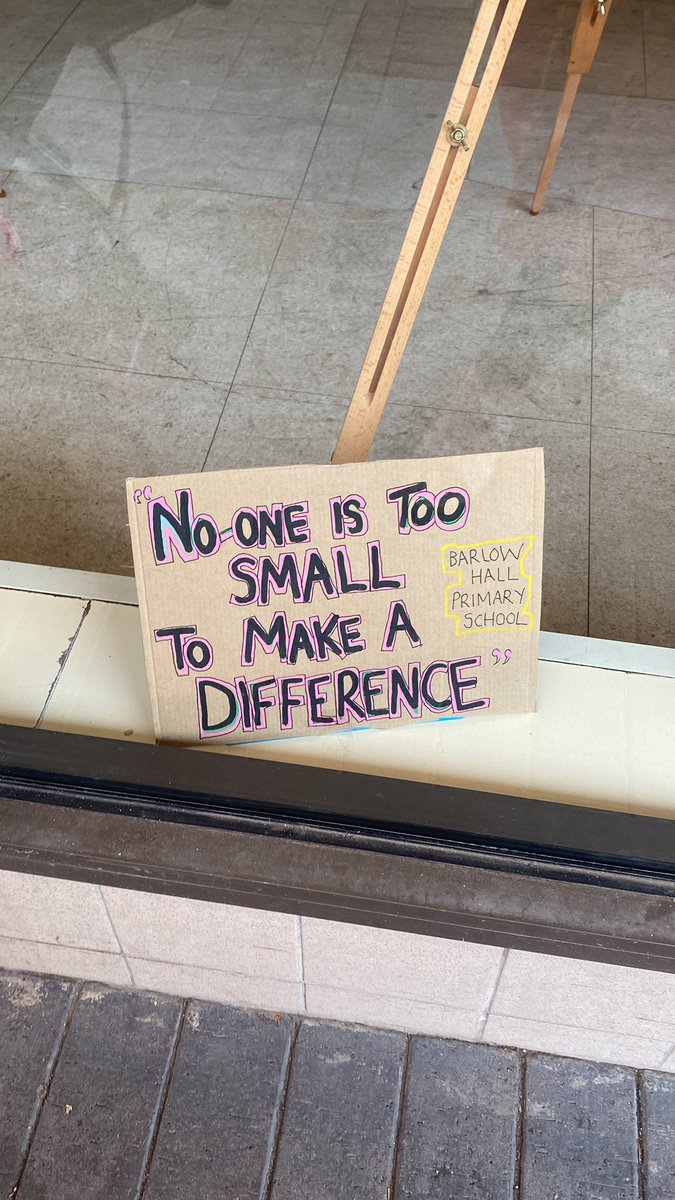 “No-ONE IS TOO
SMALL
TO MAKE A
DIFFERENCE”
BARLOW
HALL
PRIMARY
SCHOOL